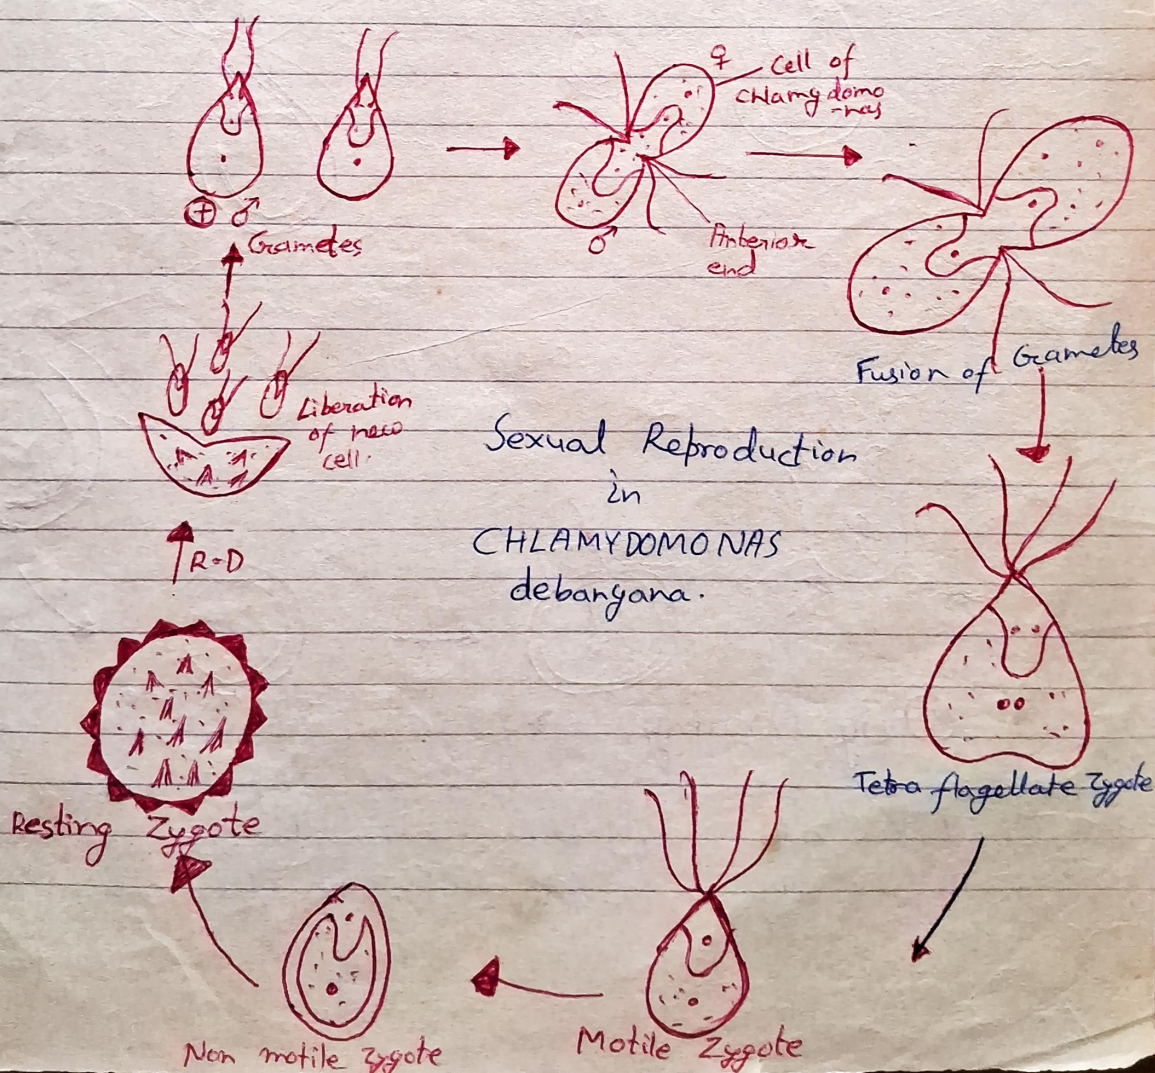 ♀
Cell of
Chlamydomo
-nas
⊕ ♂
Grametes
♂
Anterior
end
Fusion of Grametes
Liberation
of new
cell.
Sexual Reproduction
in
CHLAMYDOMONAS
debaryana.
R-D
Tetra flagellate Zygote
Resting Zygote
Motile Zygote
Non motile Zygote